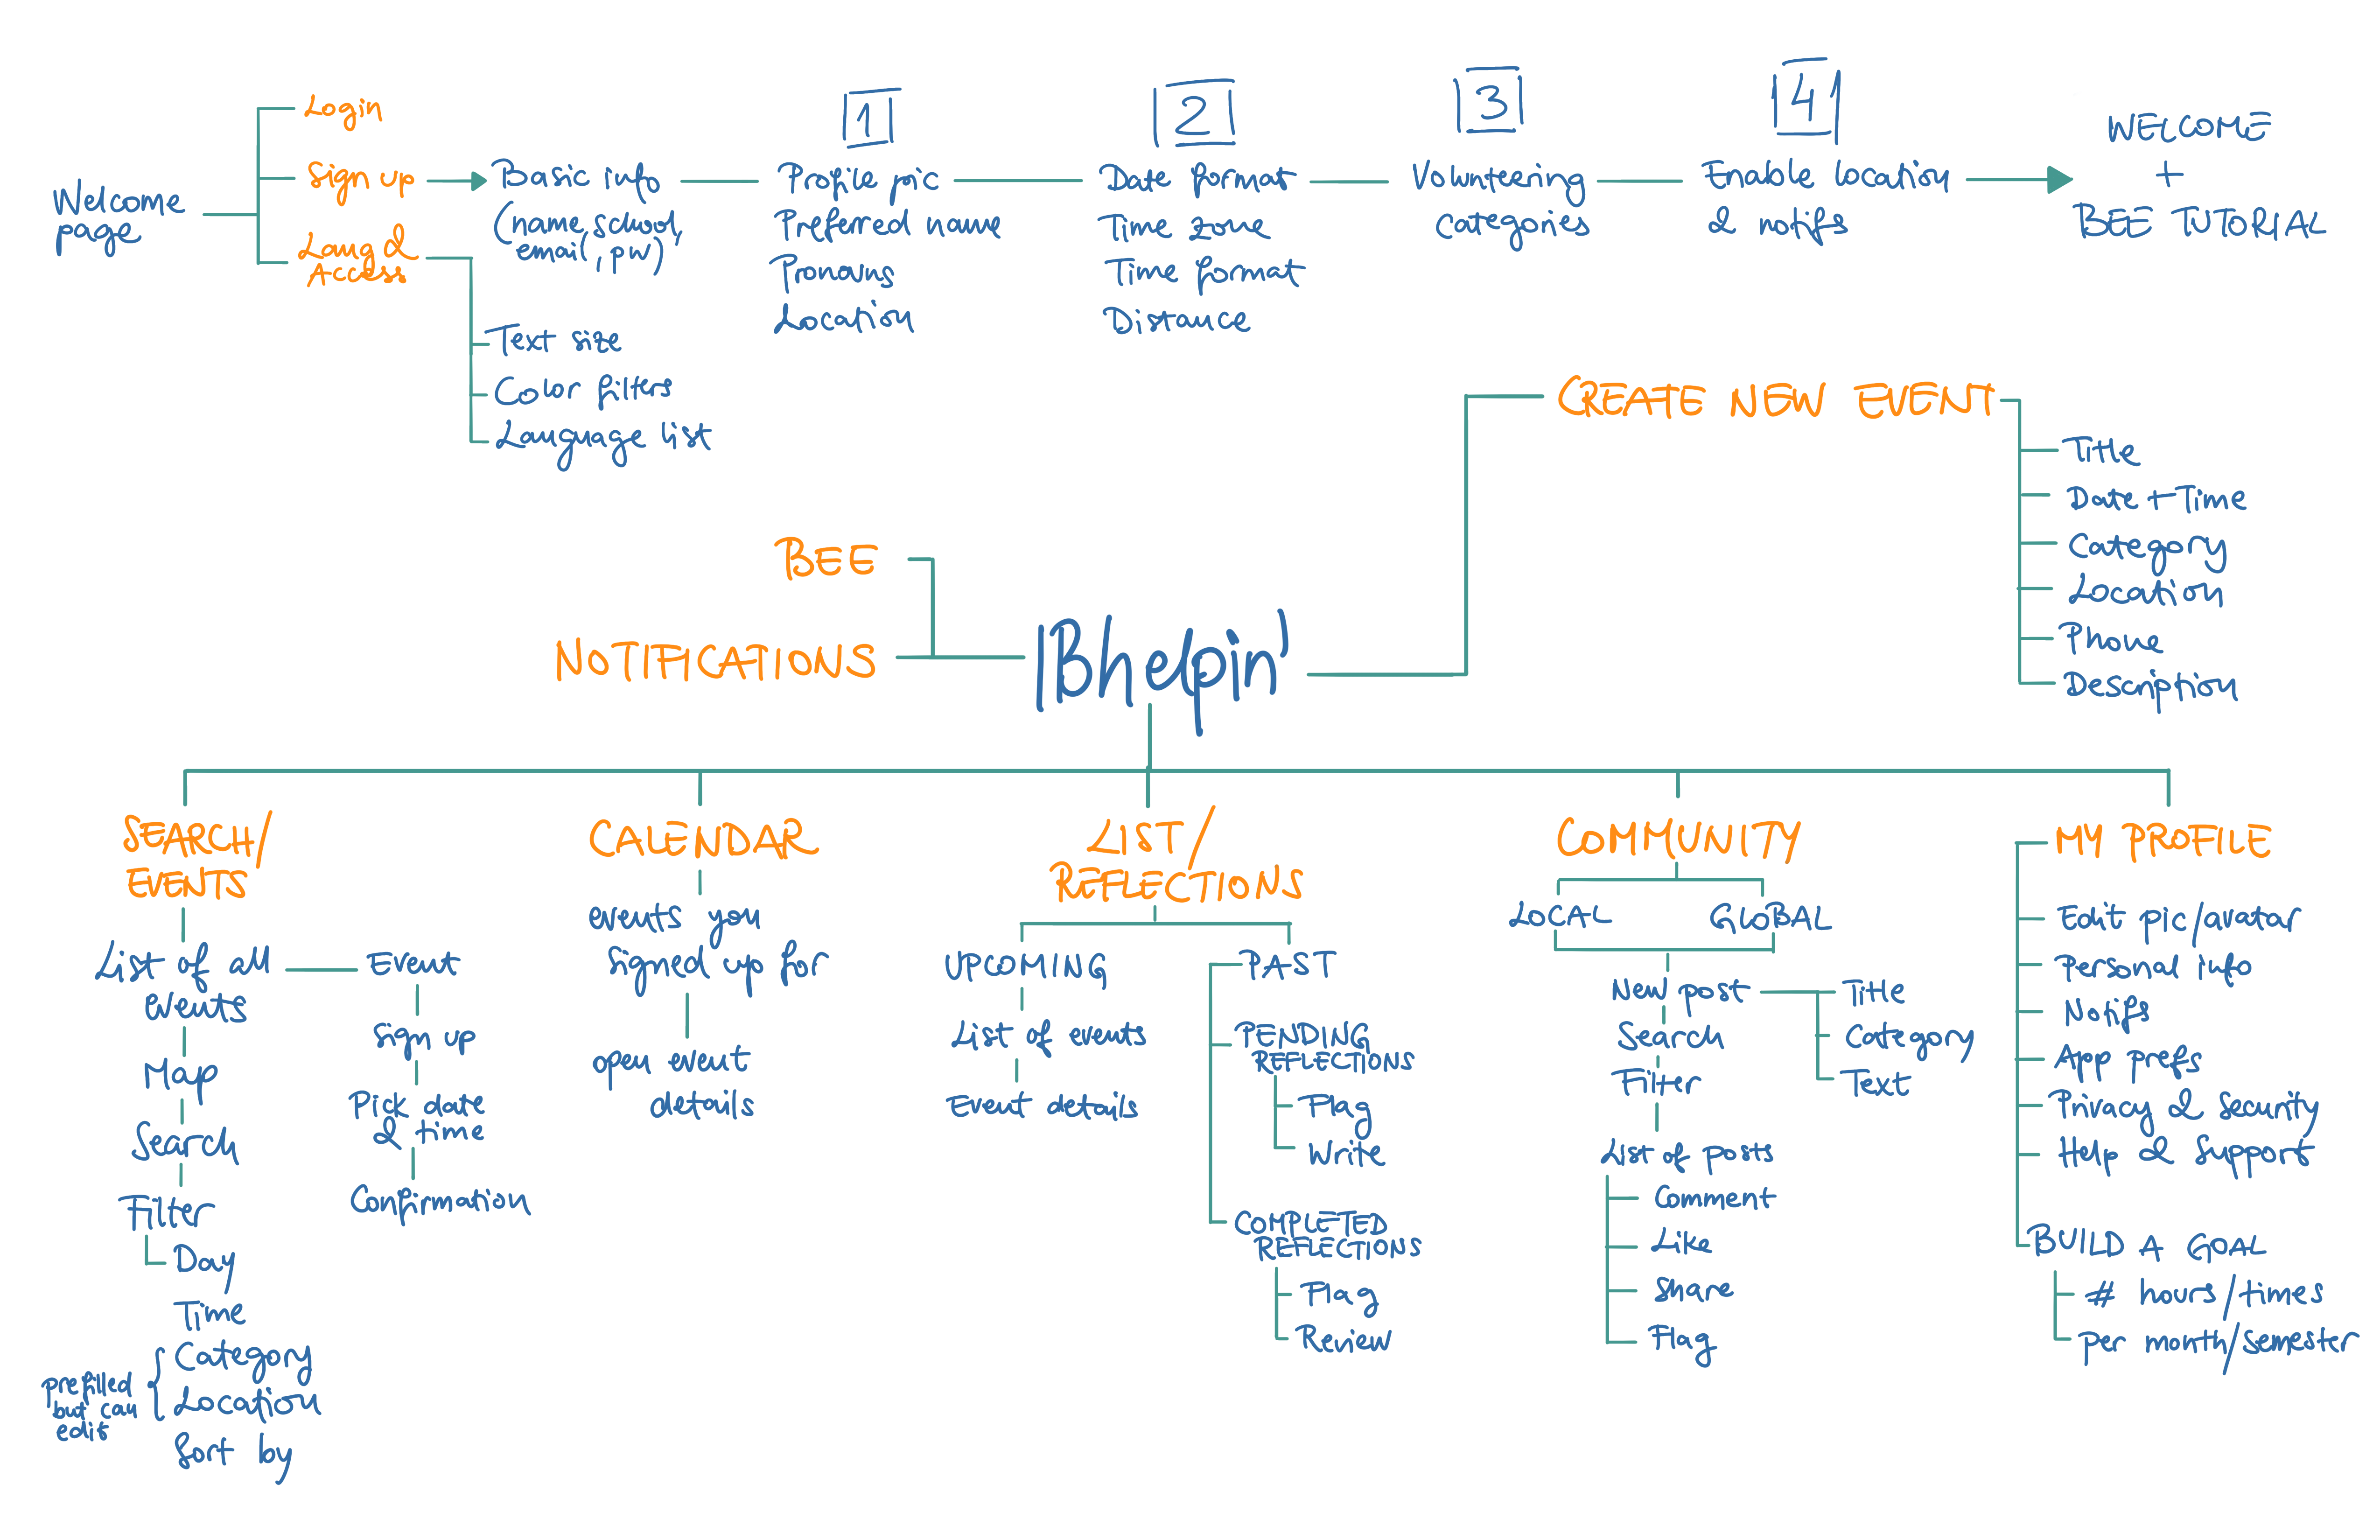 Welcome
page
Login
Sign up
Lang &
Access
Text size
Color filters
Language list
Basic info
(name, school,
email, pw)
1
Profile pic
Preferred name
Pronouns
Location
2
Date format
Time zone
Time format
Distance
3
Volunteering
categories
4
Enable location
& notifs
WELCOME
+
BEE TUTORIAL
CREATE NEW EVENT
Title
Date + Time
Category
Location
Phone
Description
BEE
NOTIFICATIONS
IBhelpin'
SEARCH/
EVENTS
List of all
events
Map
Search
Filter
Day
Time
Category
Location
Sort by
prefilled
but can
edit
Event
Sign up
Pick date
& time
Confirmation
CALENDAR
events you
signed up for
open event
details
LIST/
REFLECTIONS
UPCOMING
List of events
Event details
PAST
PENDING
REFLECTIONS
Flag
Write
COMPLETED
REFLECTIONS
Flag
Review
COMMUNITY
LOCAL
GLOBAL
New post
Title
Category
Text
Search
Filter
List of posts
Comment
Like
Share
Flag
MY PROFILE
Edit pic/avatar
Personal info
Notifs
App prefs
Privacy & Security
Help & Support
BUILD A GOAL
# hours/times
per month/semester